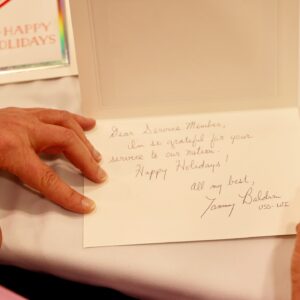 HAPPY
HOLIDAYS
Dear Service Member,
I'm so grateful for your
service to our nation.
Happy Holidays!
All my best,
Tammy Baldwin
USS-WI